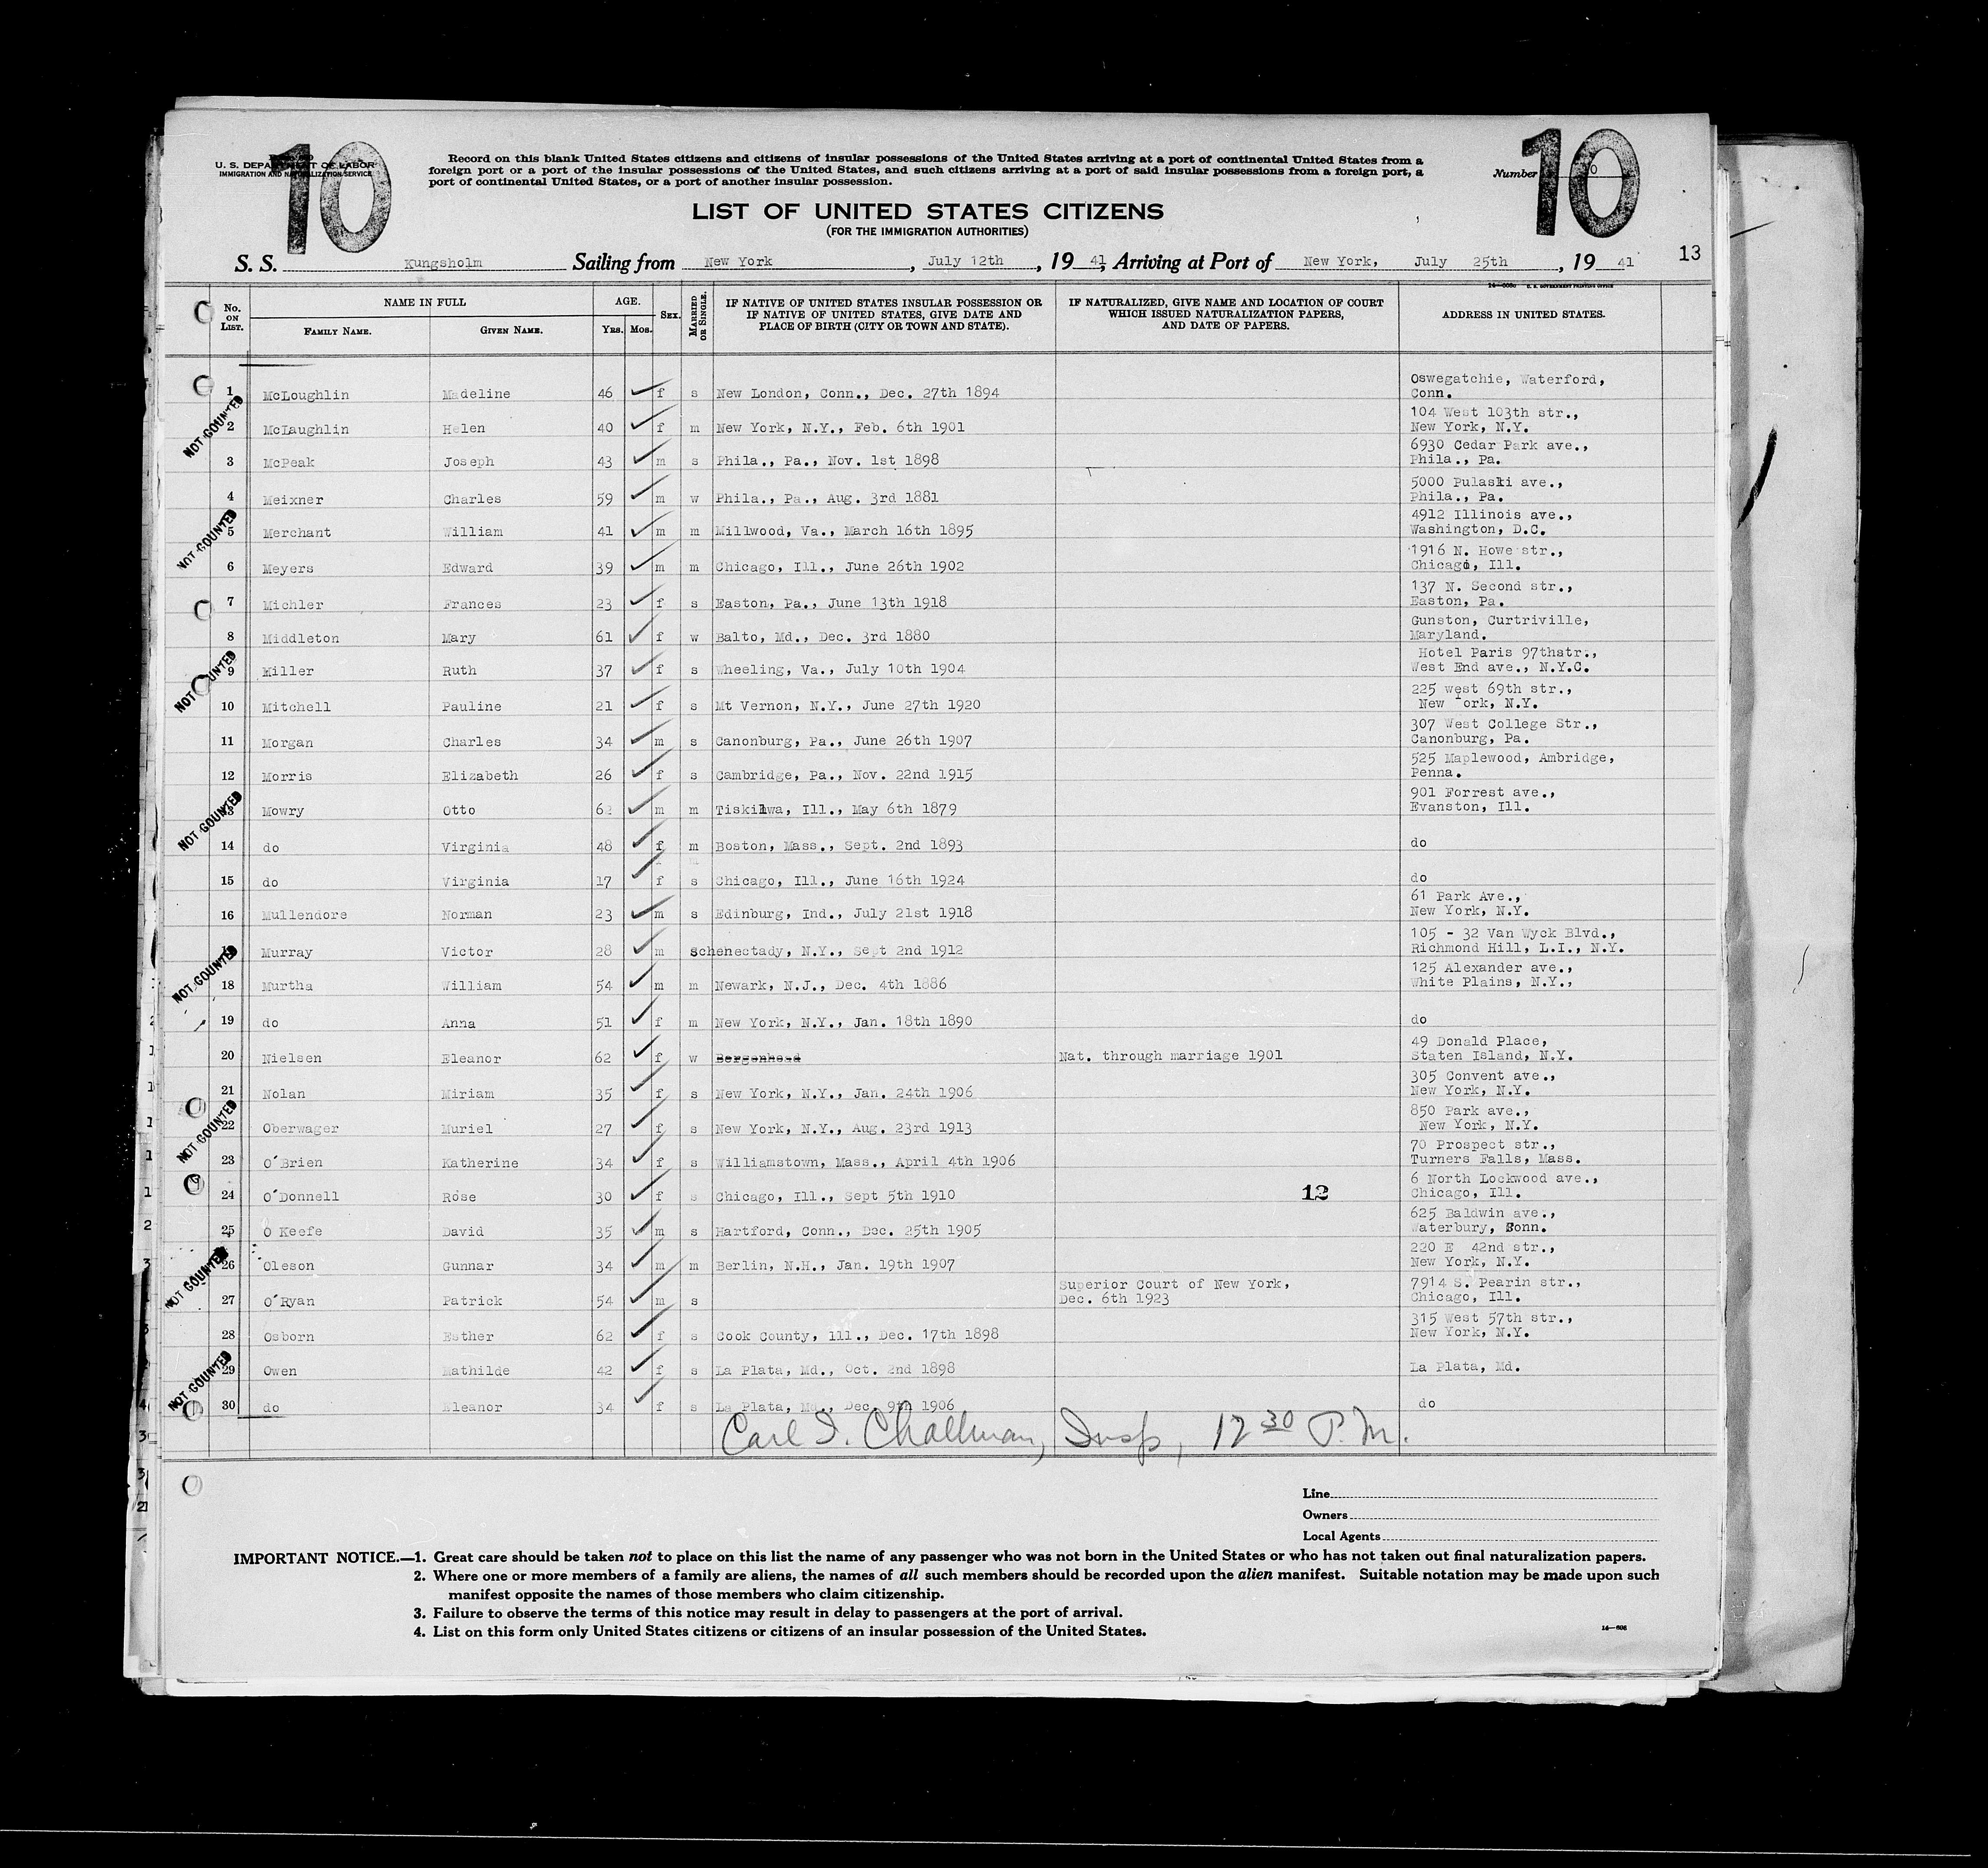 10
10
U. S. DEPARTMENT OF LABOR
IMMIGRATION AND NATURALIZATION SERVICE
Record on this blank United States citizens and citizens of insular possessions of the United States arriving at a port of continental United States from a
foreign port or a port of the insular possessions of the United States, and such citizens arriving at a port of said insular possessions from a foreign port, a
port of continental United States, or a port of another insular possession.
Number
LIST OF UNITED STATES CITIZENS
(FOR THE IMMIGRATION AUTHORITIES)
S. S. Kungsholm Sailing from New York, July 12th, 19 41, Arriving at Port of New York, July 25th, 19 41
13
No. ON LIST. NAME IN FULL FAMILY NAME. GIVEN NAME. AGE. Yrs. Mos. SEX. MARRIED OR SINGLE. IF NATIVE OF UNITED STATES INSULAR POSSESSION OR IF NATIVE OF UNITED STATES, GIVE DATE AND PLACE OF BIRTH (CITY OR TOWN AND STATE). IF NATURALIZED, GIVE NAME AND LOCATION OF COURT WHICH ISSUED NATURALIZATION PAPERS, AND DATE OF PAPERS. ADDRESS IN UNITED STATES.
1 McLoughlin Madeline 46 f s New London, Conn., Dec. 27th 1894 Oswegatchie, Waterford, Conn.
NOT COUNTED
2 McLaughlin Helen 40 f m New York, N.Y., Feb. 6th 1901 104 West 103th str., New York, N.Y.
3 McPeak Joseph 43 m s Phila., Pa., Nov. 1st 1898 6930 Cedar Park ave., Phila., Pa.
4 Meixner Charles 59 m w Phila., Pa., Aug. 3rd 1881 5000 Pulaski ave., Phila., Pa.
NOT COUNTED
5 Merchant William 41 m m Millwood, Va., March 16th 1895 4912 Illinois ave., Washington, D.C.
6 Meyers Edward 39 m m Chicago, Ill., June 26th 1902 1916 N. Howe str., Chicago, Ill.
7 Michler Frances 23 f s Easton, Pa., June 13th 1918 137 N. Second str., Easton, Pa.
8 Middleton Mary 61 f w Balto, Md., Dec. 3rd 1880 Gunston, Curtriville, Maryland.
NOT COUNTED
9 Miller Ruth 37 f s Wheeling, Va., July 10th 1904 Hotel Paris 97thstr., West End ave., N.Y.C.
10 Mitchell Pauline 21 f s Mt Vernon, N.Y., June 27th 1920 225 west 69th str., New York, N.Y.
11 Morgan Charles 34 m s Canonburg, Pa., June 26th 1907 307 West College Str., Canonburg, Pa.
12 Morris Elizabeth 26 f s Cambridge, Pa., Nov. 22nd 1915 525 Maplewood, Ambridge, Penna.
NOT COUNTED
13 Mowry Otto 62 m m Tiskilwa, Ill., May 6th 1879 901 Forrest ave., Evanston, Ill.
14 do Virginia 48 f m Boston, Mass., Sept. 2nd 1893 do
15 do Virginia 17 f s Chicago, Ill., June 16th 1924 do
16 Mullendore Norman 23 m s Edinburg, Ind., July 21st 1918 61 Park Ave., New York, N.Y.
NOT COUNTED
17 Murray Victor 28 m Schenectady, N.Y., Sept 2nd 1912 105 - 32 Van Wyck Blvd., Richmond Hill, L.I., N.Y.
18 Murtha William 54 m m Newark, N.J., Dec. 4th 1886 125 Alexander ave., White Plains, N.Y.,
19 do Anna 51 f m New York, N.Y., Jan. 18th 1890 do
20 Nielsen Eleanor 62 f w Nat. through marriage 1901 49 Donald Place, Staten Island, N.Y.
21 Nolan Miriam 35 f s New York, N.Y., Jan. 24th 1906 305 Convent ave., New York, N.Y.
NOT COUNTED
22 Oberwager Muriel 27 f s New York, N.Y., Aug. 23rd 1913 850 Park ave., New York, N.Y.
23 O'Brien Katherine 34 f s Williamstown, Mass., April 4th 1906 70 Prospect str., Turners Falls, Mass.
24 O'Donnell Rose 30 f s Chicago, Ill., Sept 5th 1910 12 6 North Lockwood ave., Chicago, Ill.
25 O Keefe David 35 m s Hartford, Conn., Dec. 25th 1905 625 Baldwin ave., Waterbury, Conn.
NOT COUNTED
26 Oleson Gunnar 34 m m Berlin, N.H., Jan. 19th 1907 220 E 42nd str., New York, N.Y.
27 O'Ryan Patrick 54 m s Superior Court of New York, Dec. 6th 1923 7914 S. Pearin str., Chicago, Ill.
28 Osborn Esther 62 f s Cook County, ill., Dec. 17th 1898 315 West 57th str., New York, N.Y.
NOT COUNTED
29 Owen Mathilde 42 f s La Plata, Md., Oct. 2nd 1898 La Plata, Md.
30 do Eleanor 34 f s La Plata, Md., Dec. 9th 1906 do
Carl I. Challman, Insp, 12 30 P.M.
Line
Owners
Local Agents
IMPORTANT NOTICE.—1. Great care should be taken not to place on this list the name of any passenger who was not born in the United States or who has not taken out final naturalization papers.
2. Where one or more members of a family are aliens, the names of all such members should be recorded upon the alien manifest. Suitable notation may be made upon such
manifest opposite the names of those members who claim citizenship.
3. Failure to observe the terms of this notice may result in delay to passengers at the port of arrival.
4. List on this form only United States citizens or citizens of an insular possession of the United States.